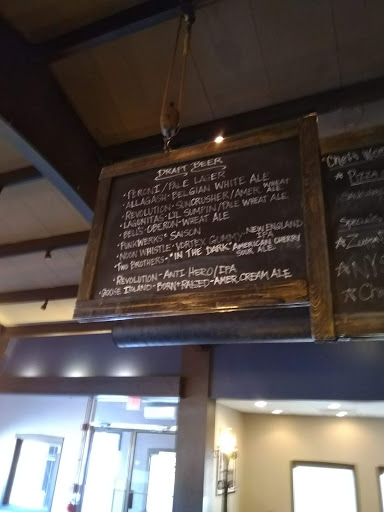 DRAFT BEER
• PERONI/PALE LAGER
• ALLAGASH • BELGIAN WHITE ALE
• REVOLUTION • SUNCRUSHER/AMER. WHEAT
• LAGUNITAS • LIL SUMPIN/PALE WHEAT ALE
• BELL'S OBERON • WHEAT ALE
• FUNKWERKS • SAISON
• NOON WHISTLE • VORTEX GUMMY • NEW ENGLAND IPA
• TWO BROTHERS • "IN THE DARK" AMERICAN CHERRY SOUR ALE
• REVOLUTION - ANTI HERO/IPA
• GOOSE ISLAND • BORN & RAISED - AMER. CREAM ALE
Chef's
★ PIZZA